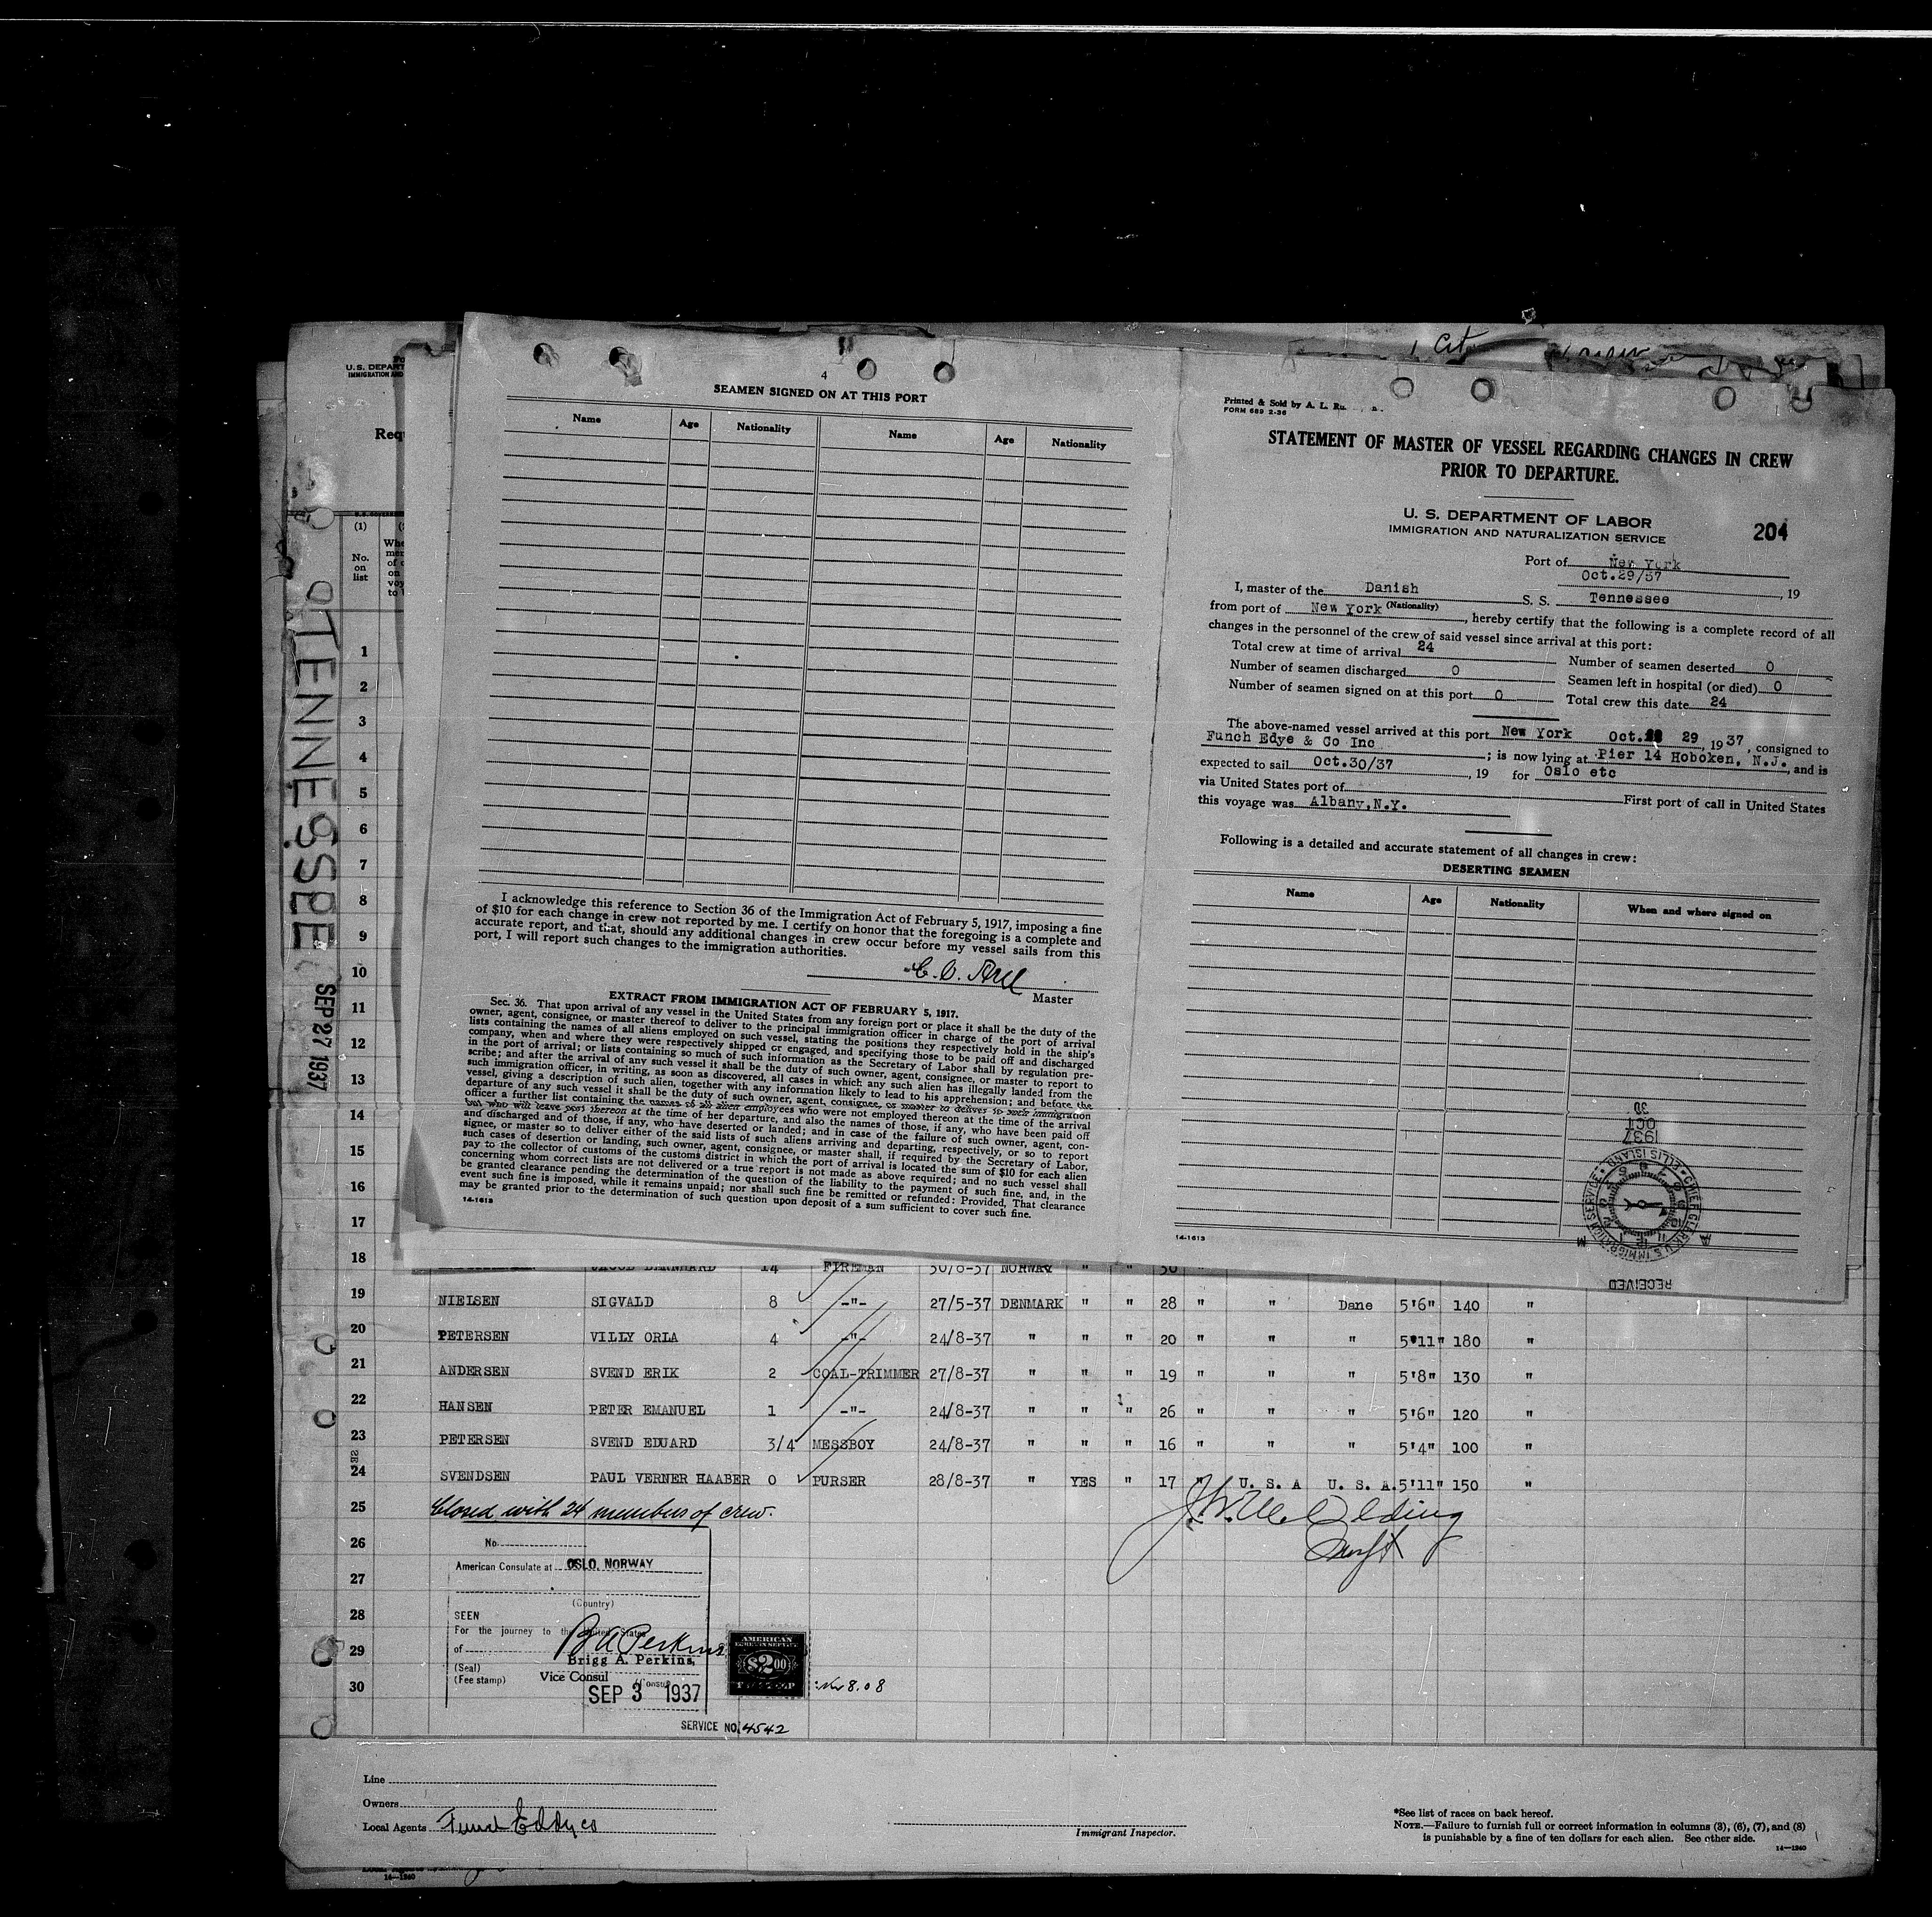 4
SEAMEN SIGNED ON AT THIS PORT
Name Age Nationality Name Age Nationality
I acknowledge this reference to Section 36 of the Immigration Act of February 5, 1917, imposing a fine
of $10 for each change in crew not reported by me. I certify on honor that the foregoing is a complete and
accurate report, and that, should any additional changes in crew occur before my vessel sails from this
port, I will report such changes to the immigration authorities.
Master
EXTRACT FROM IMMIGRATION ACT OF FEBRUARY 5, 1917.
Sec. 36. That upon arrival of any vessel in the United States from any foreign port or place it shall be the duty of the
owner, agent, consignee, or master thereof to deliver to the principal immigration officer in charge of the port of arrival
lists containing the names of all aliens employed on such vessel, stating the positions they respectively hold in the ship's
company, when and where they were respectively shipped or engaged, and specifying those to be paid off and discharged
in the port of arrival; or lists containing so much of such information as the Secretary of Labor shall by regulation pre-
scribe; and after the arrival of any such vessel it shall be the duty of such owner, agent, consignee, or master to report to
such immigration officer, in writing, as soon as discovered, all cases in which any such alien has illegally landed from the
vessel, giving a description of such alien, together with any information likely to lead to his apprehension; and before the
departure of any such vessel it shall be the duty of such owner, agent, consignee, or master to deliver to such immigration
officer a further list containing the names of all alien employees who were not employed thereon at the time of the arrival
but who will leave port thereon at the time of her departure, and also the names of those, if any, who have been paid off
and discharged and of those, if any, who have deserted or landed; and in case of the failure of such owner, agent, con-
signee, or master so to deliver either of the said lists of such aliens arriving and departing, respectively, or so to report
such cases of desertion or landing, such owner, agent, consignee, or master shall, if required by the Secretary of Labor,
pay to the collector of customs of the customs district in which the port of arrival is located the sum of $10 for each alien
concerning whom correct lists are not delivered or a true report is not made as above required; and no such vessel shall
be granted clearance pending the determination of the question of the liability to the payment of such fine, and, in the
event such fine is imposed, while it remains unpaid; nor shall such fine be remitted or refunded: Provided, That clearance
may be granted prior to the determination of such question upon deposit of a sum sufficient to cover such fine.
14-1613
Printed & Sold by A. L.
FORM 689 2-36
STATEMENT OF MASTER OF VESSEL REGARDING CHANGES IN CREW
PRIOR TO DEPARTURE.
U. S. DEPARTMENT OF LABOR
IMMIGRATION AND NATURALIZATION SERVICE
204
Port of New York
Oct.29/37, 19
I, master of the Danish S. S. Tennessee
(Nationality)
from port of New York, hereby certify that the following is a complete record of all
changes in the personnel of the crew of said vessel since arrival at this port:
Total crew at time of arrival 24 Number of seamen deserted 0
Number of seamen discharged 0 Seamen left in hospital (or died) 0
Number of seamen signed on at this port 0 Total crew this date 24
The above-named vessel arrived at this port New York Oct. 29, 1937, consigned to
Funch Edye & Co Inc; is now lying at Pier 14 Hoboken, N.J., and is
expected to sail Oct.30/37, 19 for Oslo etc
via United States port of First port of call in United States
this voyage was Albany, N.Y.
Following is a detailed and accurate statement of all changes in crew:
DESERTING SEAMEN
Name Age Nationality When and where signed on
1937
OCT
30
CHIEF CLERK U.S IMMIGRATION SERVICE
ELLIS ISLAND
RECEIVED
14-1613
TENNESSEE
SEP 27 1937
(1)
No.
on
list
1
2
3
4
5
6
7
8
9
10
11
12
13
14
15
16
17
18 JACOB BERNHARD 14 FIREMAN 30/8-37 NORWAY " " 30
19 NIELSEN SIGVALD 8 -"- 27/5-37 DENMARK " " 28 " " Dane 5'6" 140 "
20 PETERSEN VILLY ORLA 4 -"- 24/8-37 " " " 20 " " " 5'11" 180 "
21 ANDERSEN SVEND ERIK 2 COAL-TRIMMER 27/8-37 " " " 19 " " " 5'8" 130 "
22 HANSEN PETER EMANUEL 1 -"- 24/8-37 " " " 26 " " " 5'6" 120 "
23 PETERSEN SVEND EDUARD 3/4 MESSBOY 24/8-37 " " " 16 " " " 5'4" 100 "
24 SVENDSEN PAUL VERNER HAABER 0 PURSER 28/8-37 " YES " 17 " U. S. A U. S. A. 5'11" 150 "
25 Closed with 24 members of crew.
26
27
28
29
30
No.
American Consulate at OSLO, NORWAY
(Country)
SEEN
For the journey to the United States
of
B A Perkins
Brigg A. Perkins,
(Seal)
(Fee stamp)
Vice Consul
SEP 3 1937
AMERICAN
$2.00
SERVICE NO. 4542
Line
Owners
Local Agents
Immigrant Inspector.
*See list of races on back hereof.
NOTE.—Failure to furnish full or correct information in columns (3), (6), (7), and (8)
is punishable by a fine of ten dollars for each alien. See other side.
14—1240
14—1240